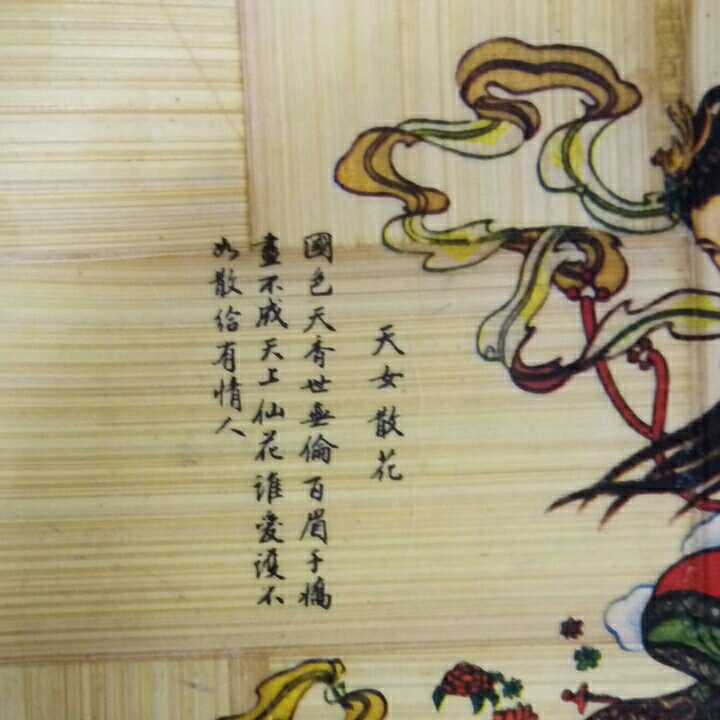 天女散花
國色天香世無倫百眉千嬌
畫不成天上仙花誰愛護不
如散給有情人